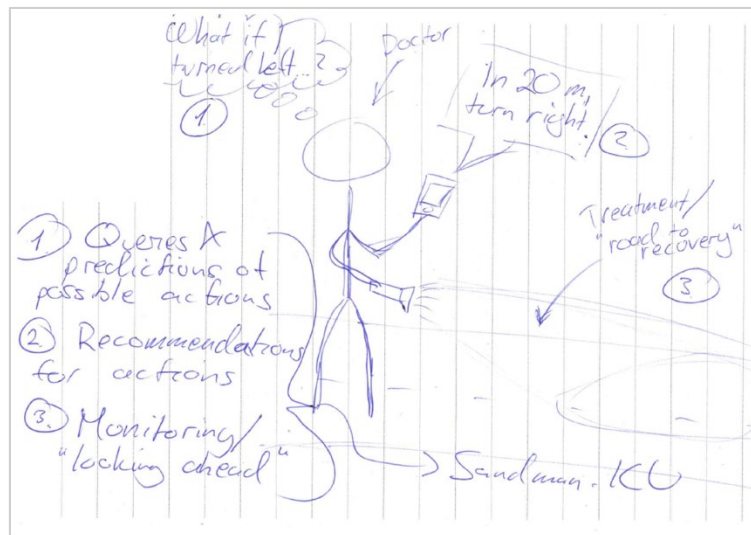 What if I
turned left...?
①
Doctor
In 20 m,
turn right.
②
Treatment/
"road to
recovery"
③
① Queries &
predictions of
possible actions
② Recommendations
for actions
③. Monitoring/
"looking ahead"
Sandman.ICU